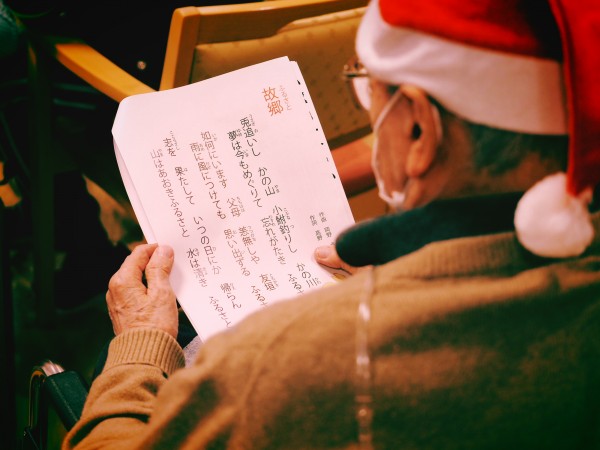 ふるさと
故郷
作曲 岡野
作詞 高野
兎追いし かの山 小鮒釣りし かの川
夢は今もめぐりて 忘れがたき ふるさ
如何にいます 父母 恙無しや 友垣
雨に風につけても 思い出ずる ふるさ
志を 果たして いつの日にか 帰らん
山はあおきふるさと 水は清き ふるさと